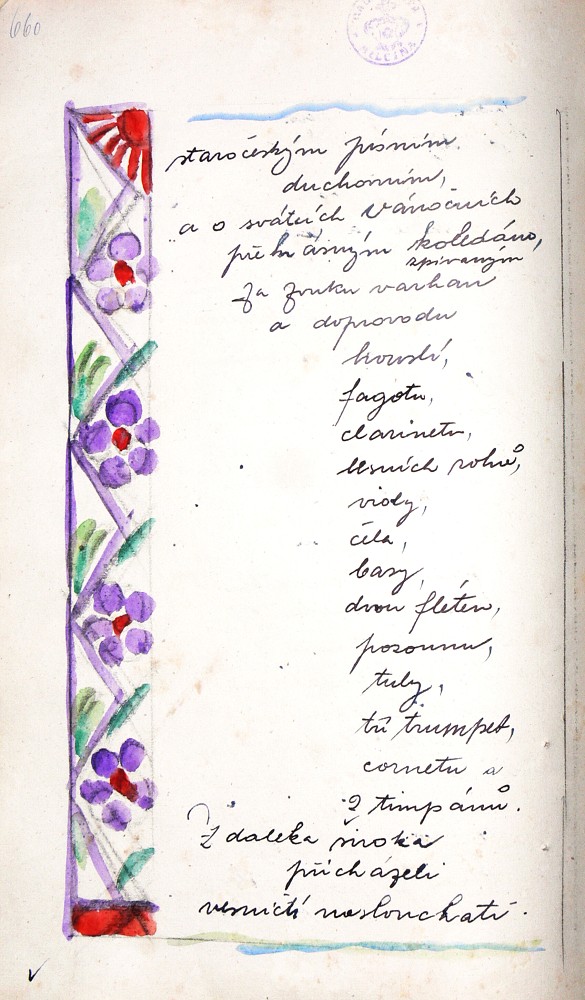 660
staročeským písním
duchovním,
a o svátcích vánočních
překrásným koledám,
zpívaným
za zvuku varhan
a doprovodu
houslí,
fagotu,
clarinetu,
lesních rohů,
violy,
čela,
basy,
dvou fléten,
pozounu,
tuby,
tří trumpet,
cornetu a
2 timpánů.
Z daleka široka
přicházeli
vesničtí naslouchati.